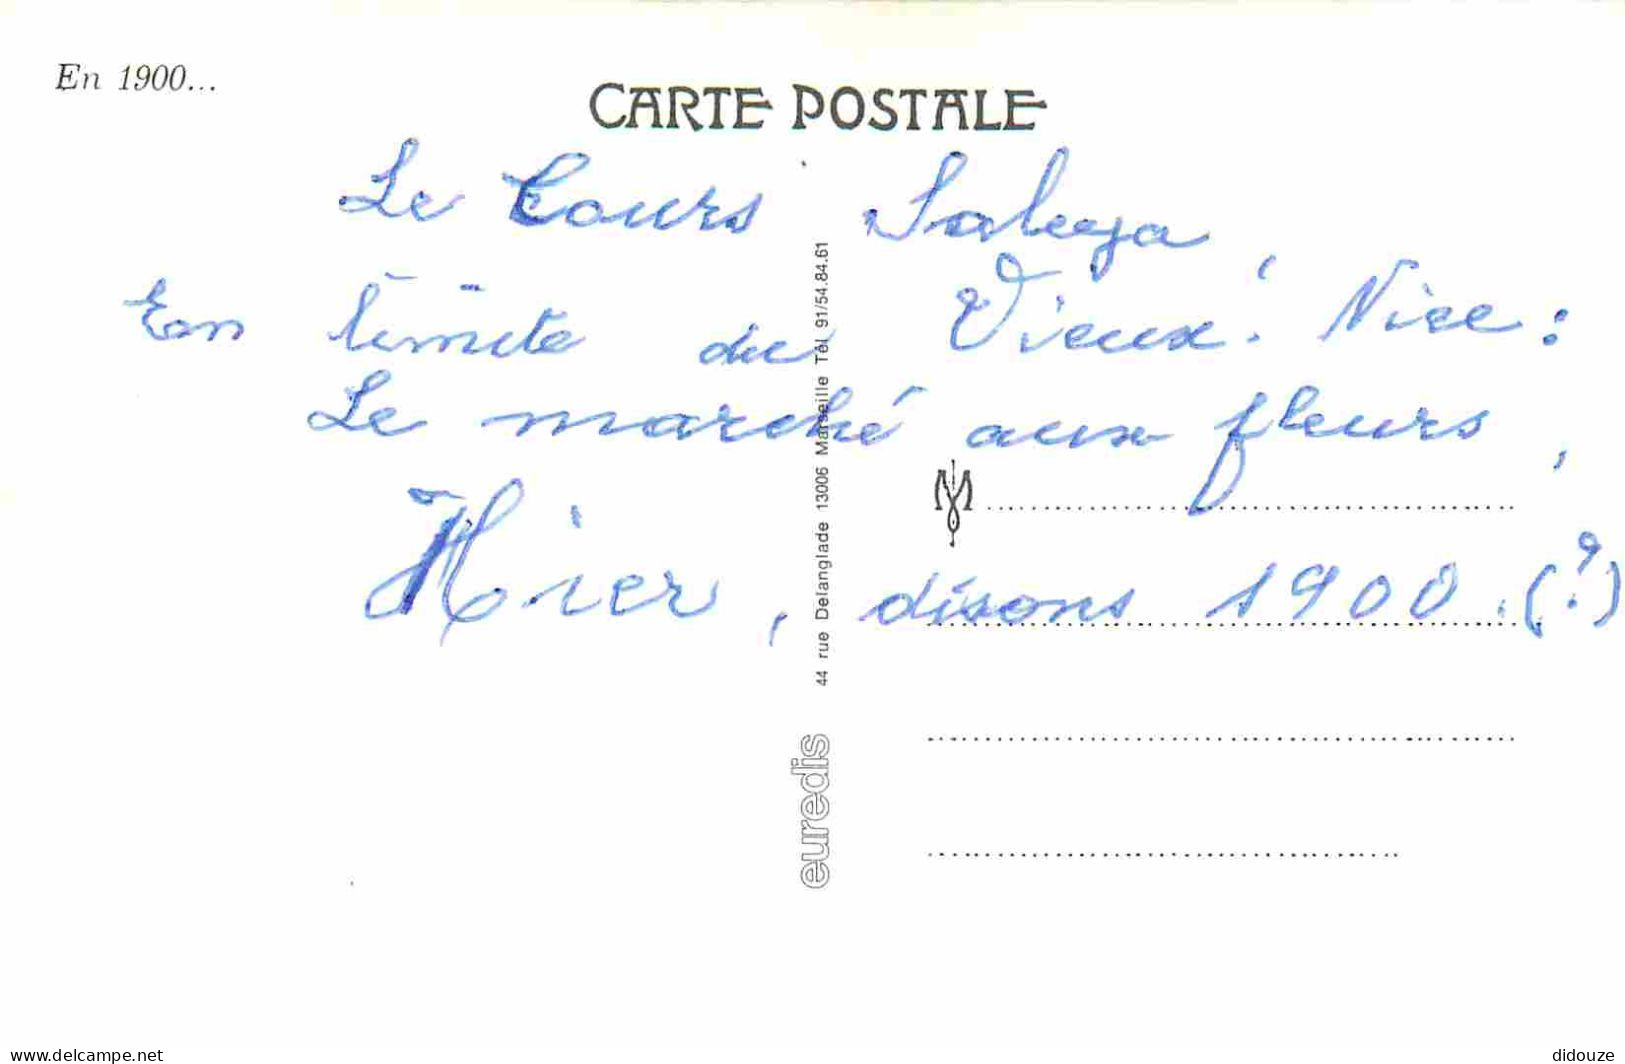 En 1900...
CARTE POSTALE
Le Cours Saleya,
En limite du Vieux. Nice:
Le marché aux fleurs,
Hier, disons 1900.(?)
euredis 44 rue Delanglade 13006 Marseille Tél 91/54.84.61
www.delcampe.net
didouze